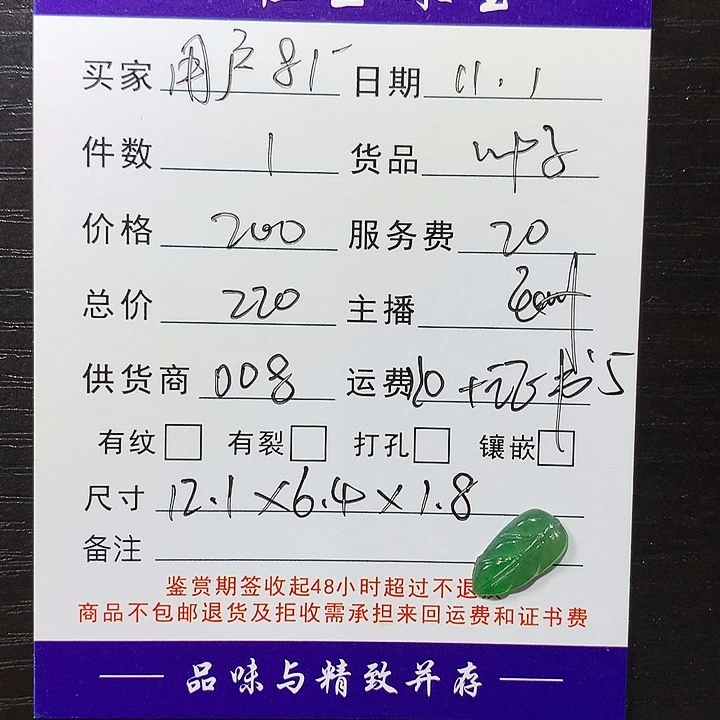 买家 用户815 日期 11.1
件数 1 货品 叶子
价格 200 服务费 20
总价 220 主播
供货商 008 运费10+证书5
有纹 有裂 打孔 镶嵌
尺寸 12.1×6.4×1.8
备注
鉴赏期签收起48小时超过不退
商品不包邮退货及拒收需承担来回运费和证书费
品味与精致并存